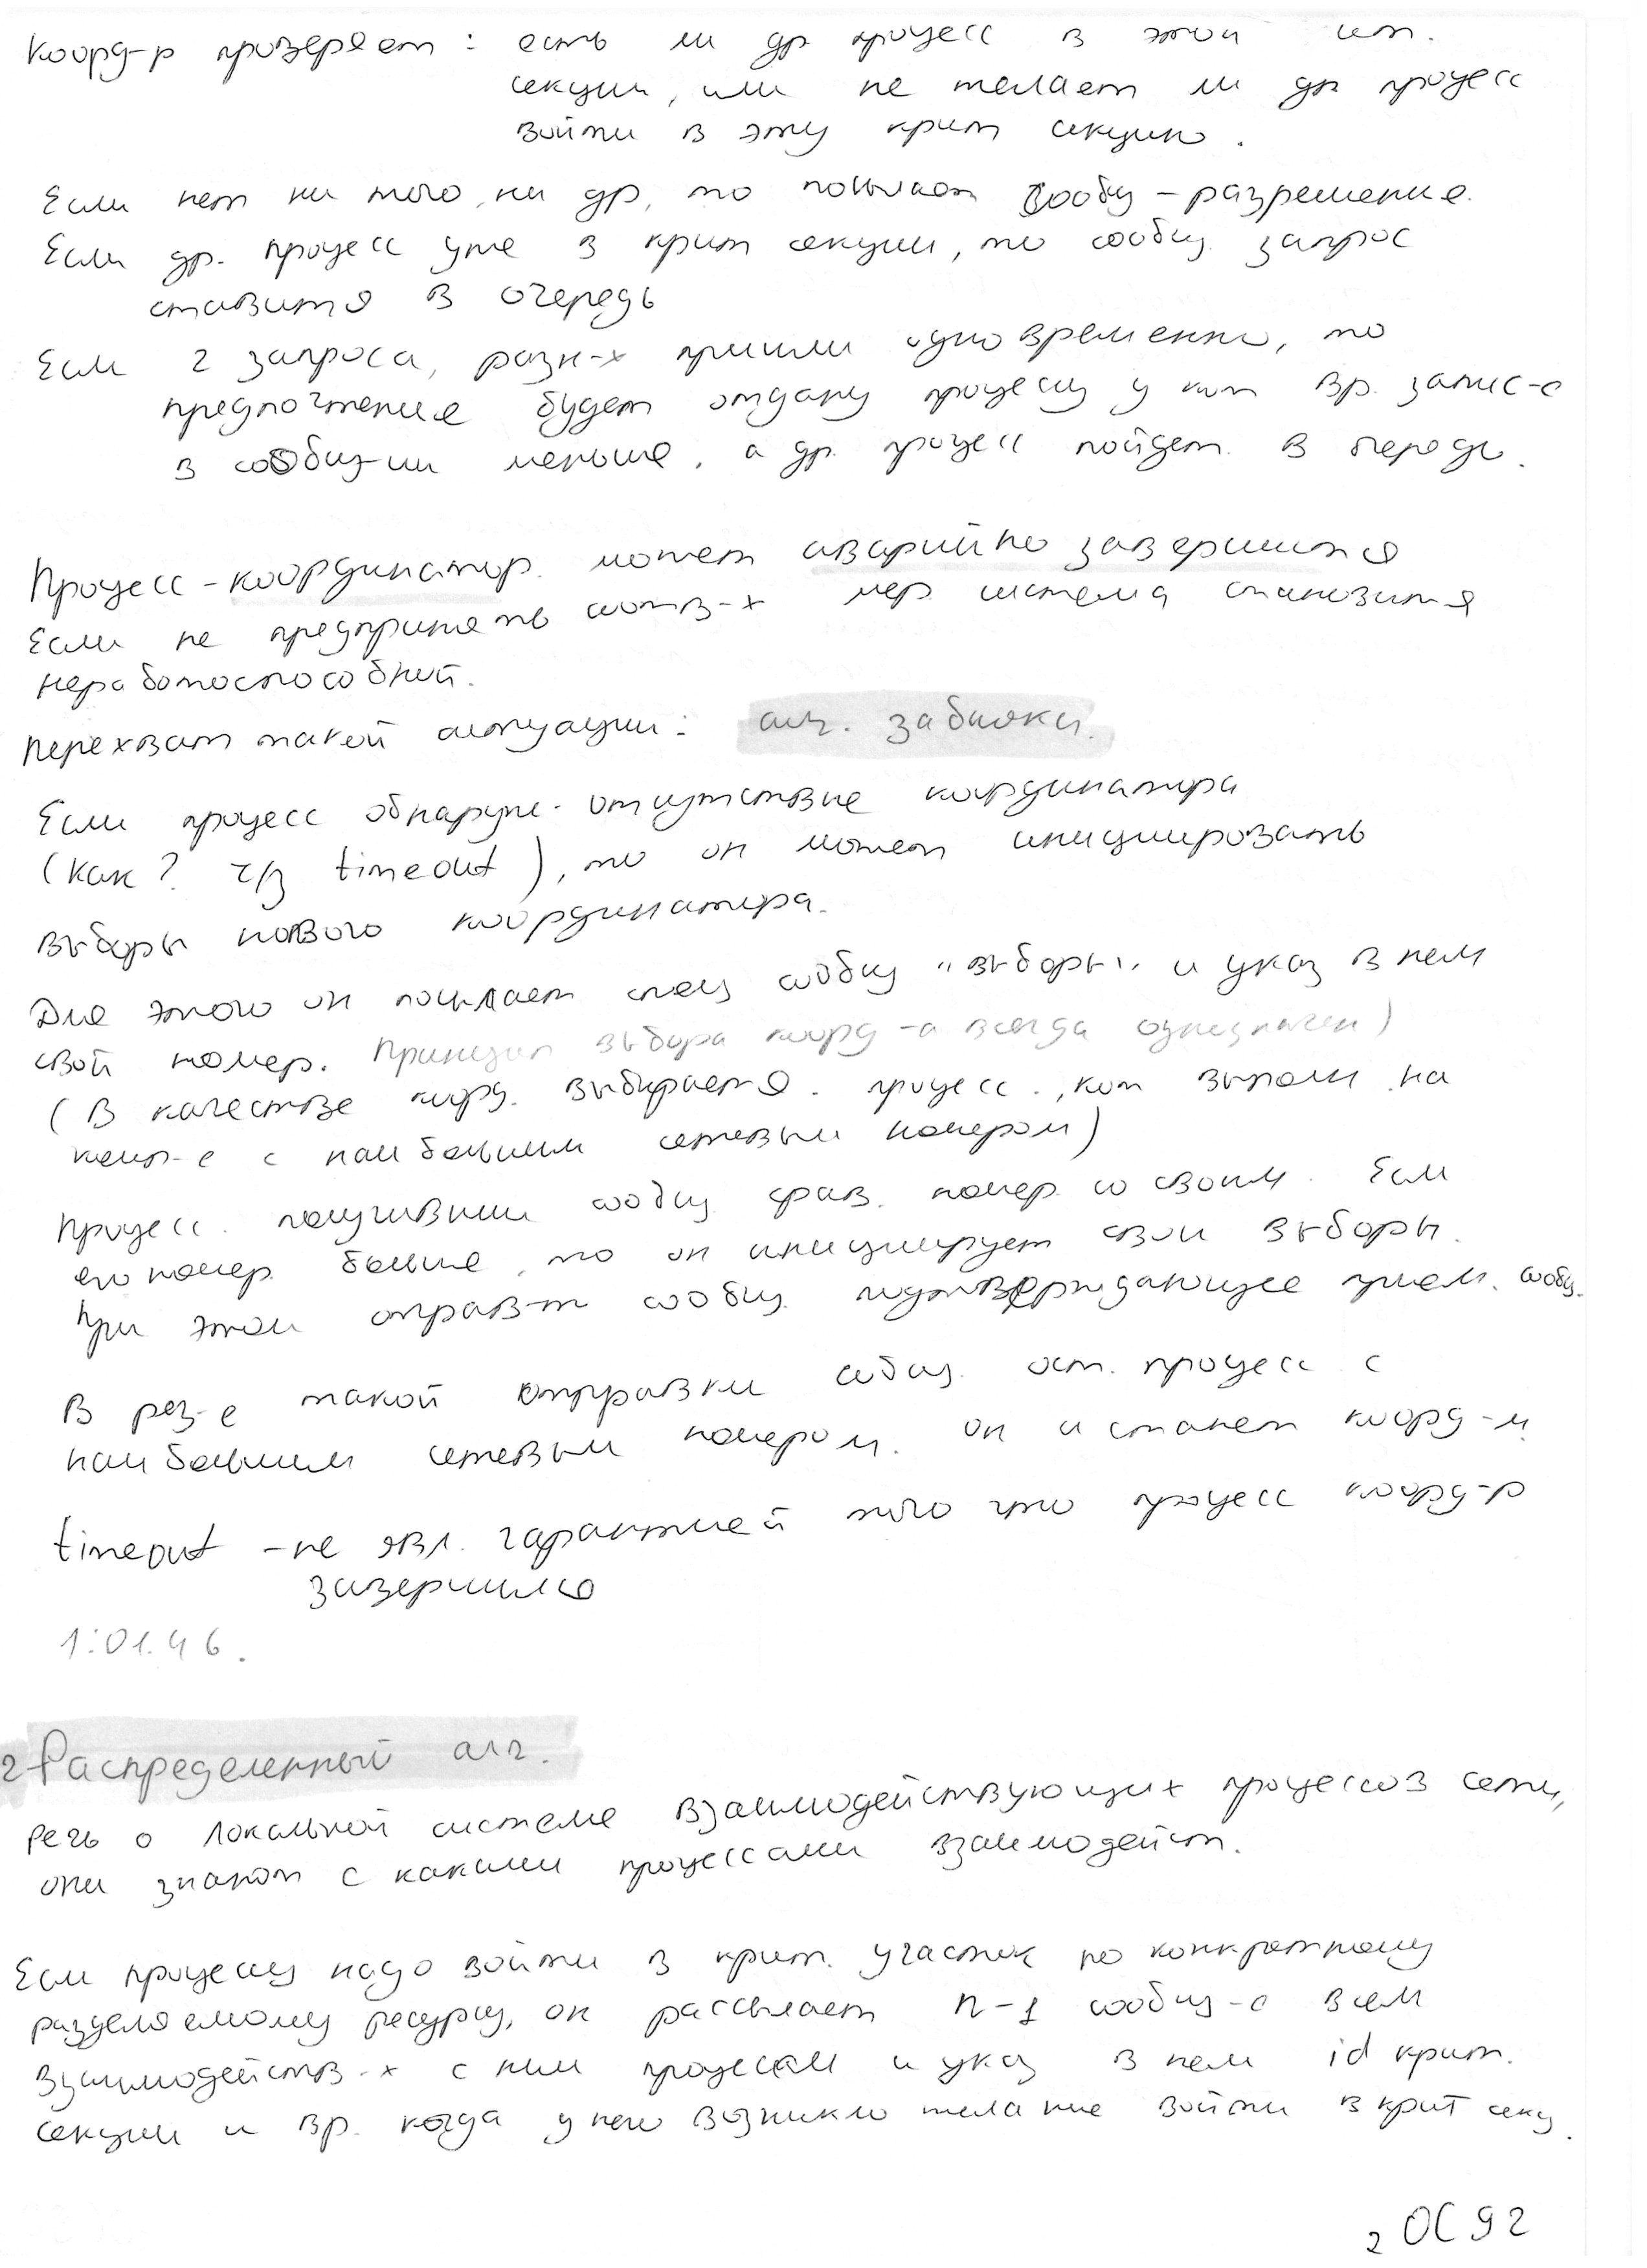 Коорд-р проверяет: есть ли др процесс в этой кт.
секции, или не желает ли др процесс
войти в эту крит секцию.
Если нет ни того, ни др, то посылает сообщ-разрешение.
Если др. процесс уже в крит секции, то сообщ. запрос
ставится в очередь
Если 2 запроса, разн-х пришли одновременно, то
предпочтение будет отдану процессу у кот вр. запис-е
в сообщ-ии меньше, а др. процесс пойдет в очередь.
Процесс-координатор может аварийно завершится
Если не предпринять соотв-х мер система становится
неработоспособной.
Перехват такой ситуации: алг. забияки.
Если процесс обнаруж. отсутствие координатора
(Как? ч/з timeout), то он может инициировать
выборы нового координатора.
Для этого он посылает спец сообщ "выборы" и указ в нем
свой номер. Принцип выбора коорд-а всегда однозначен)
(В качестве коорд. выбирается процесс, кот выполн на
комп-е с наибольшим сетевым номером)
Процесс получивший сообщ срав. номер со своим. Если
его номер больше, то он инициирует свои выборы.
При этом отправ-т сообщ. подтверждающее прием. сообщ.
В рез-е такой отправки сообщ. ост. процесс с
наибольшим сетевым номером. он и станет коорд-м.
timeout - не явл. гарантией того что процесс коорд-р
завершился
1:01.46.
2 Распределенный алг.
речь о локальной системе взаимодействующих процессов сети,
они знают с какими процессами взаимодейст.
Если процессу надо войти в крит. участок по конкретному
разделяемому ресурсу, он рассылает n-1 сообщ-е всем
взаимодейств-х с ним процессам и указ в нем id крит.
секции и вр. когда у него возникло желание войти в крит секц.
2 ОС 92